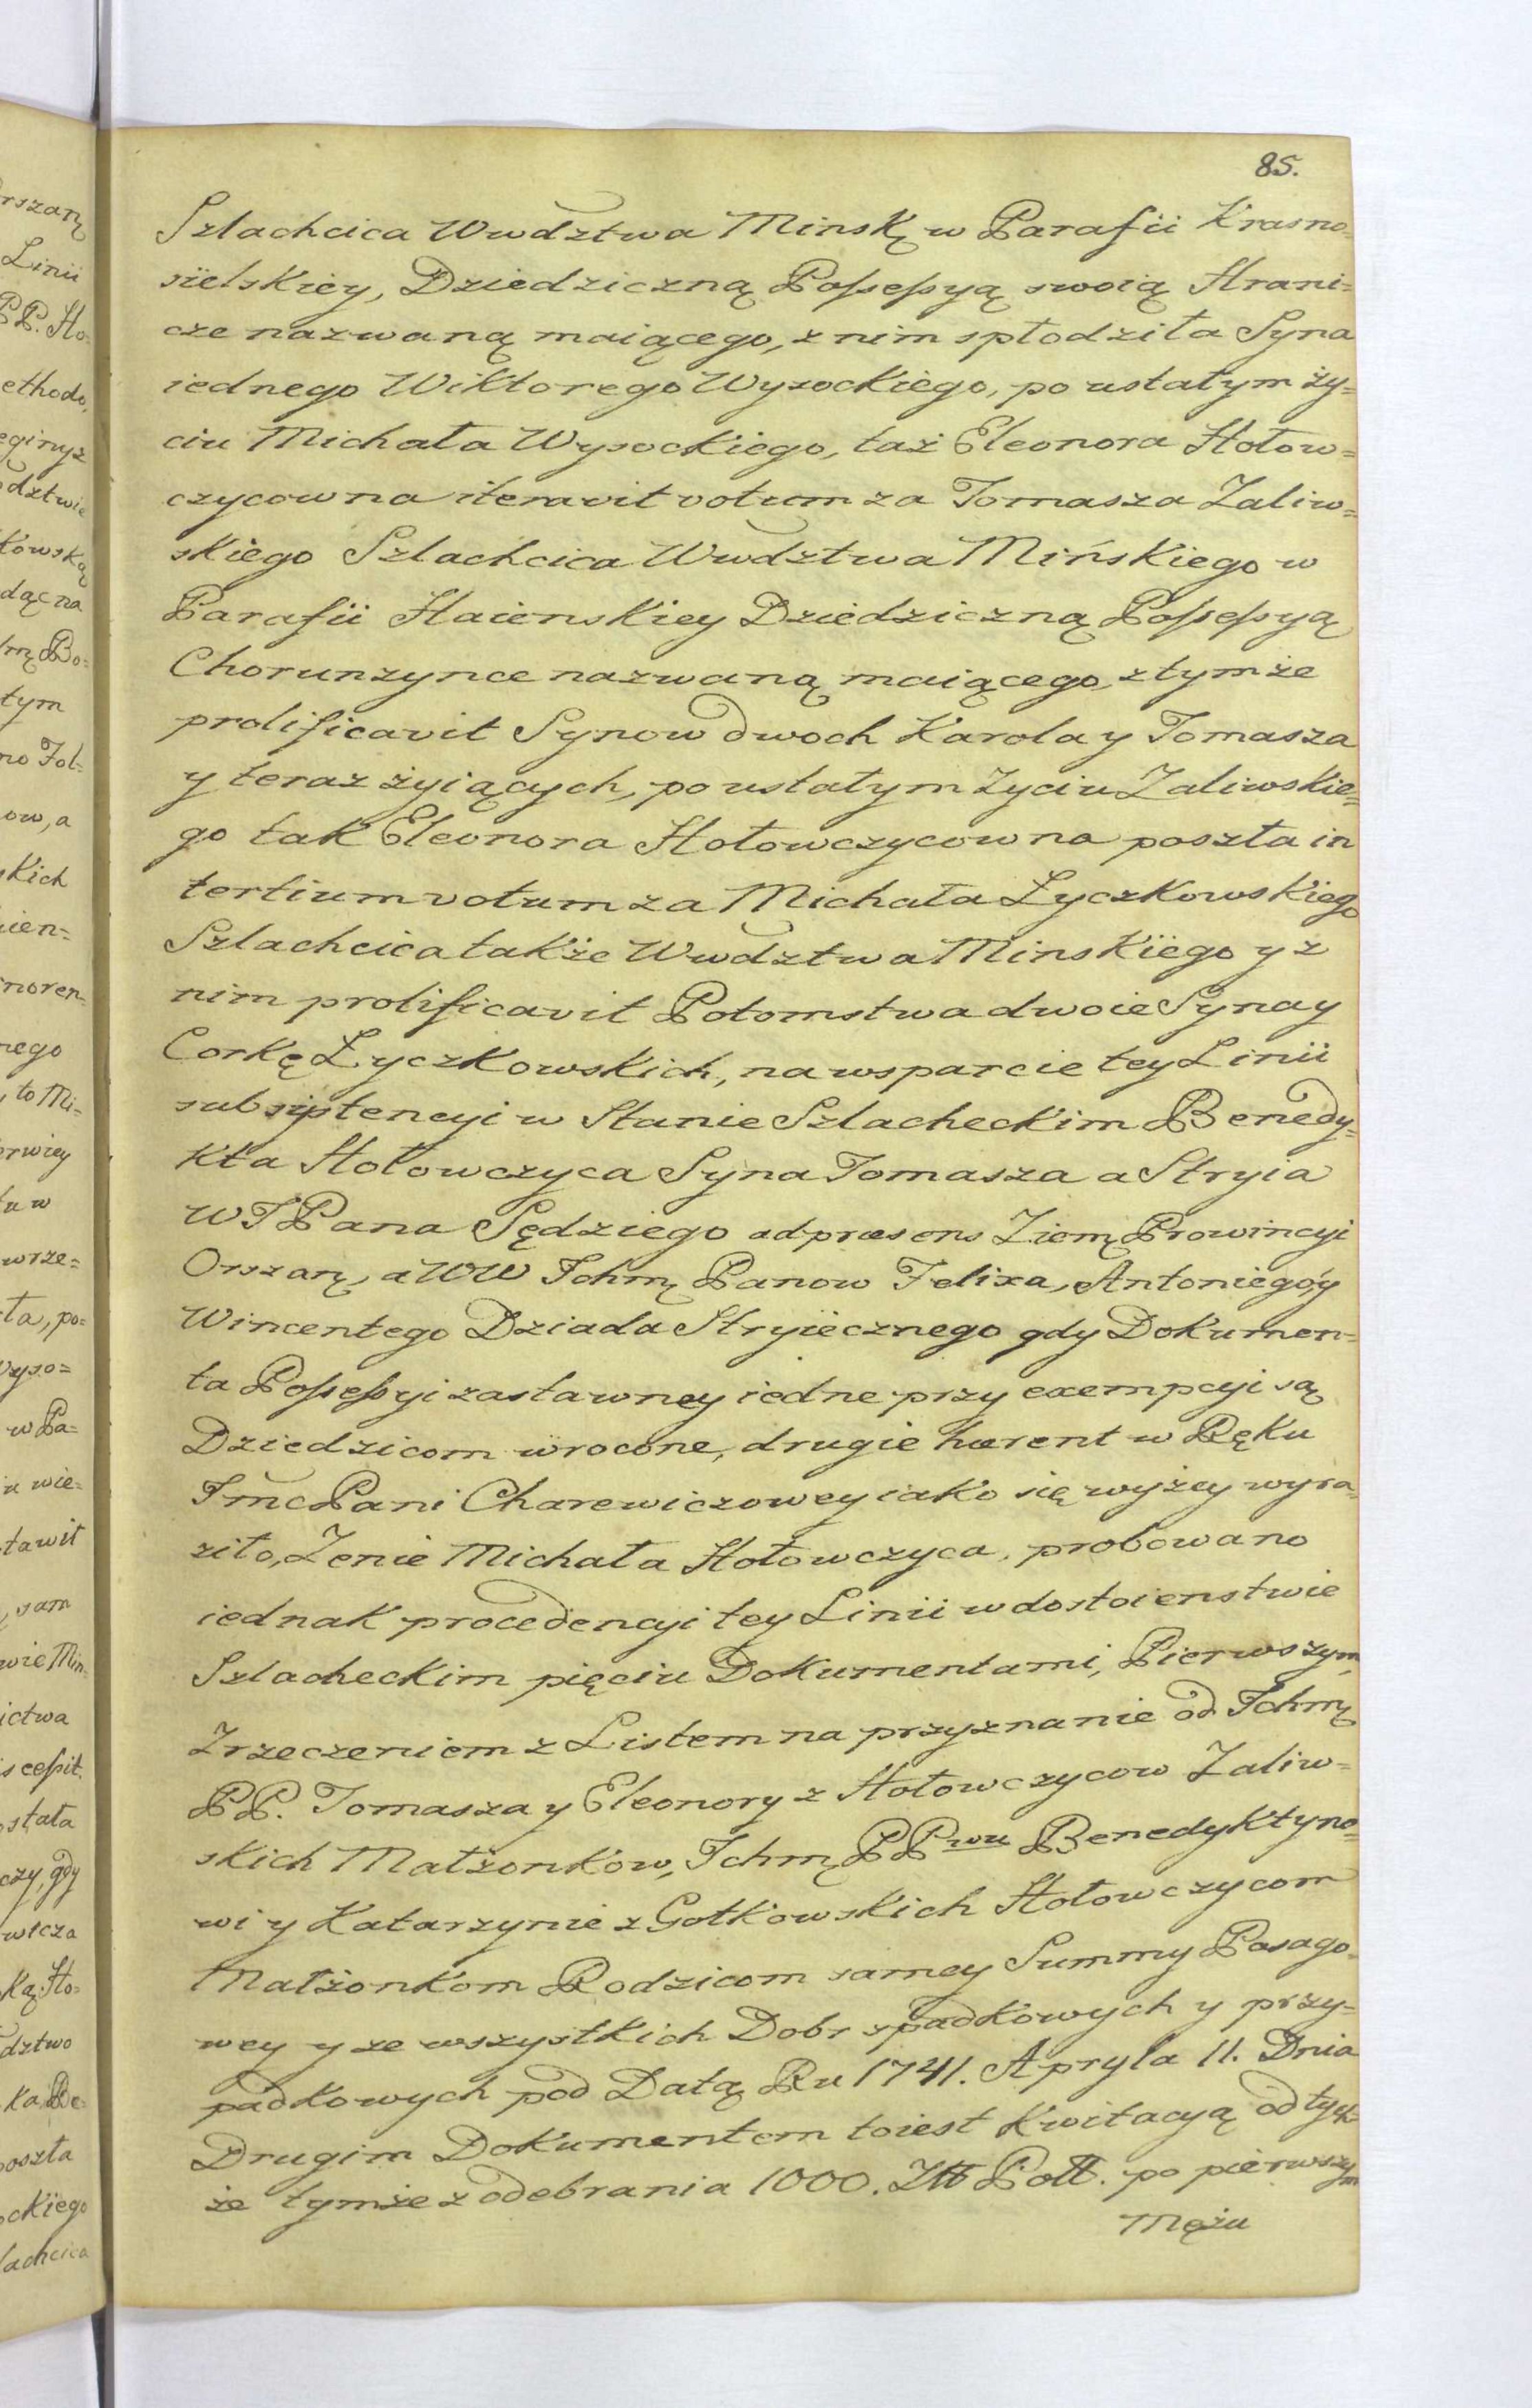 85.
Szlachcica Wwdztwa Minsk: w Parafii Krasno=
sielskiey, Dziedziczną Possessyą swoią Hrani=
cze nazwaną maiącego, z nim spłodziła Syna
iednego Wiktorego Wysockiego, po ustałym ży=
ciu Michała Wysockiego, taż Eleonora Hołow=
czycowna iteravit votum za Tomasza Zaliw=
skiego Szlachcica Wwdztwa Mińskiego w
Parafii Haienskiey Dziedziczną Possessyą
Chorunzynce nazwaną maiącego, z tymże
prolificavit Synow dwoch Karola y Tomasza
y teraz żyiących, po ustałym życiu Zaliwskie=
go tak Eleonora Hołowczycowna poszła in
tertium votum za Michała Łyczkowskiego
Szlachcica także Wwdztwa Minskiego y z
nim prolificavit Potomstwa dwoie Syna y
Corkę Łyczkowskich, na wsparcie tey Linii
subsistencyi w Stanie Szlacheckim Benedy=
kta Hołowczyca Syna Tomasza a Stryia
WJPana Sędziego ad præsens Ziem: Prowincyi
Orszań:, a WW Ichm: Panow Felixa, Antoniego, y
Wincentego Dziada Stryiecznego gdy Dokumen=
ta Possessyi zastawney iedne przy exempcyi są
Dziedzicom wrocone, drugie hærent w Ręku
JmcPani Charewiczowey iako się wyżey wyra=
ziło, Żenie Michała Hołowczyca, probowano
iednak procedencyi tey Linii w dostoienstwie
Szlacheckim pięciu Dokumentami, Pierwszym,
Zrzeczeniem z Listem na przyznanie od Ichm:
PP. Tomasza y Eleonory z Hołowczycow Zaliw=
skich Małżonkow, Ichm: PPwu Benedyktyno=
wi y Katarzynie z Gotkowskich Hołowczycom
Małżonkom Rodzicom samey Summy Posago=
wey y ze wszystkich Dobr spadkowych y przy=
padkowych pod Datą Ru 1741. Apryla 11. Dnia
Drugim Dokumentem toiest Kwitacyą od tych=
że tymże z odebrania 1000. Złł Poll. po pierwszym
Mężu